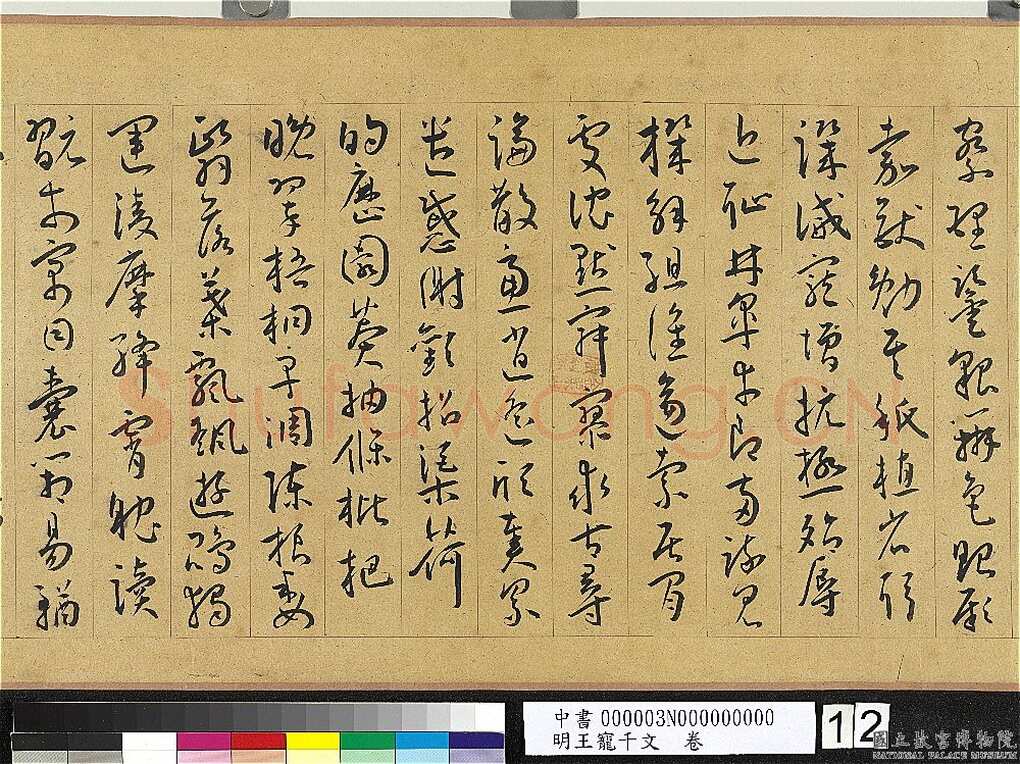 察理鑒貌辨色貽厥
嘉猷勉其祗植省躬
譏誡寵增抗極殆辱
近恥林皋幸即兩疏見
機解組誰逼索居閒
處沈默寂寥求古尋
論散慮逍遙欣奏累
遣慼謝歡招渠荷
的歷園莽抽條枇杷
晚翠梧桐早凋陳根委
翳落葉飄颻遊鵾獨
運凌摩絳霄耽讀
翫市寓目囊箱易輶
shufawang.CN
中書 000003N000000000
明王寵千文 卷
12
國立故宮博物院
NATIONAL PALACE MUSEUM